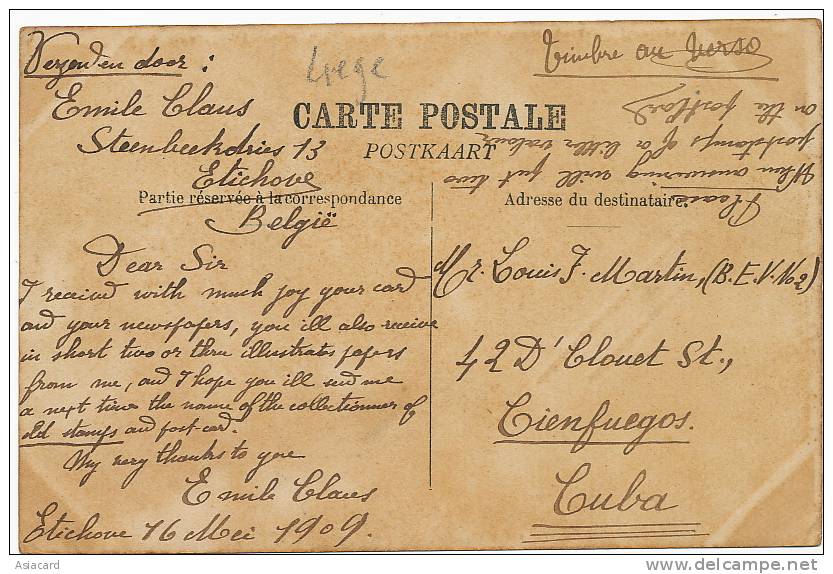 Verzonden door :
Emile Claus
Steenbeekdries 13
Etichove
België
Liege
Timbre au verso
CARTE POSTALE
POSTKAART
Partie réservée à la correspondance
Adresse du destinataire.
Please
When answering will put two
poststamps of a litter valour
on the postcard
Dear Sir
I received with much joy your card
and your newspapers, you ill also receive
in short two or thre illustrats papers
from me, and I hope you ill send me
a next time the name of the collectionner of
old stamps and post-card.
My very thanks to you
Emile Claus
Etichove 16 Mei 1909.
Mr. Louis F. Martin, (B.E.V. No 2)
42 D'Clouet St.,
Cienfuegos.
Cuba
Asiacard
delcampe.net